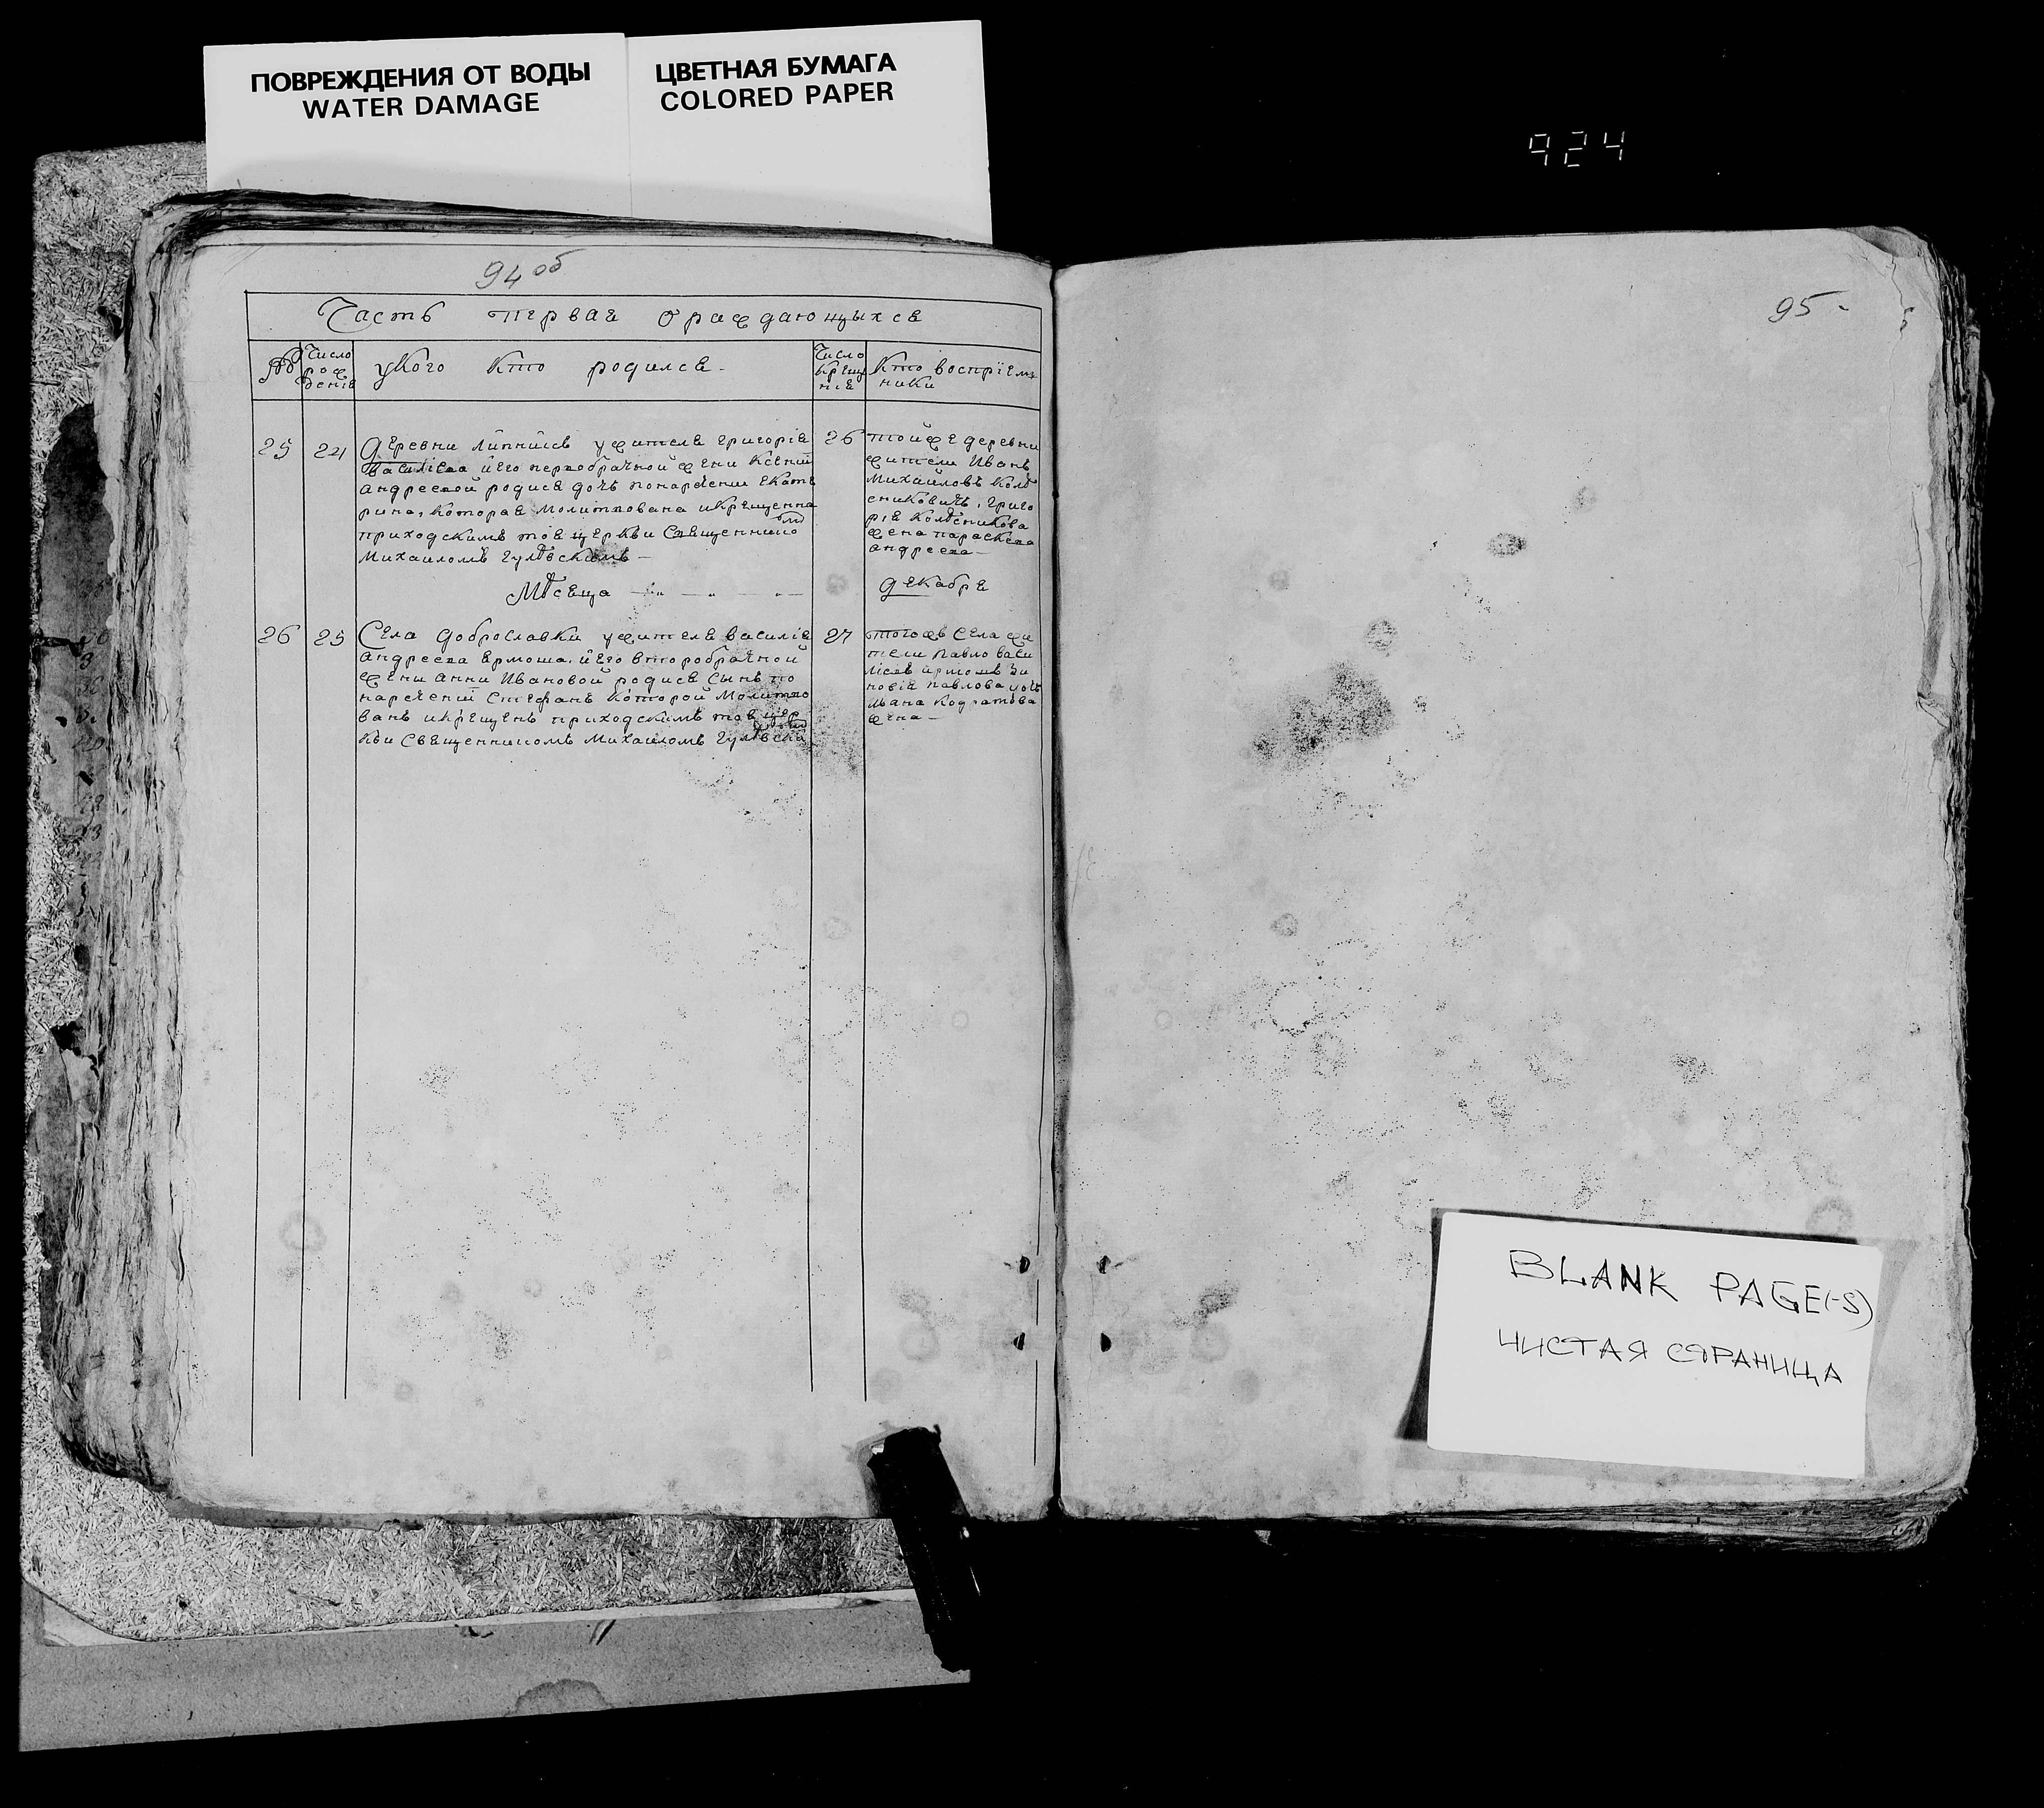 ПОВРЕЖДЕНИЯ ОТ ВОДЫ
WATER DAMAGE
ЦВЕТНАЯ БУМАГА
COLORED PAPER
924
94 об
95
Часть первая ораждающыхся
№
Число
рож
денія
укого кто родился
Число
крещ
нія
Кто воспріем
ники
25 24
Деревни Липнikъ ужителя григорія
василіева иего первобрачной жени Ксеніи
андреевой родися дочъ понаречени Екате
рина, которая молитвована икрещенна
приходскимъ тоя церкви Священнико
Михаиломъ Гулѣвскимъ
26
тойже деревни
жители Иванъ
Михайловъ Колѣ
сниковичъ, григо
рія Колѣсникова
жена параскева
андреева
Мѣсяца
декабря
26 25
Села доброславки ужителя василія
андреева ярмоша, иего второбрачной
жени анни Ивановой родися Сынъ по
нареченій Стефанъ которой Молитво
ванъ икрещенъ приходскимъ тоя цер
кви Священникомъ Михаиломъ Гулѣвски
27
тогожъ Села жи
тели павло васи
ліевъ ярмошъ Зи
новія павлова
Ивана
жена
BLANK PAGE(-S)
ЧИСТАЯ СТРАНИЦА